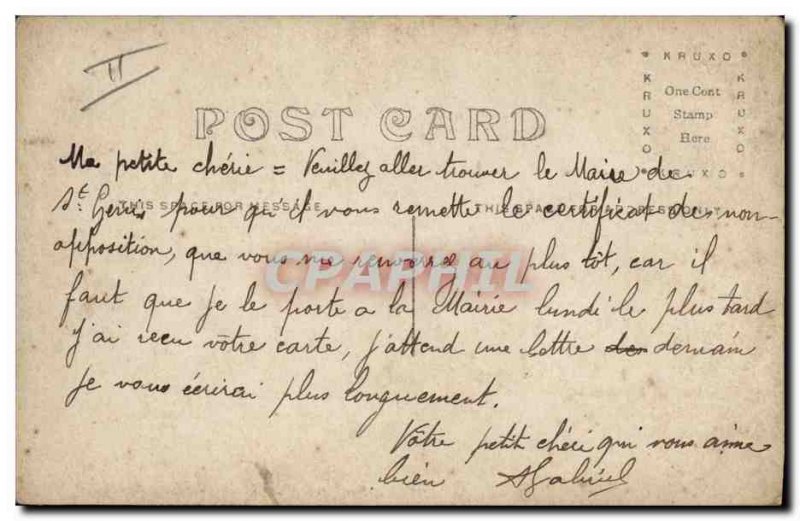 II
KRUXO
KRUXO
One Cent
Stamp
Here
KRUXO
KRUXO
POST CARD
Ma petite chérie = Veuillez aller trouver le Maire de
THIS SPACE FOR MESSAGE
St pour qu'il vous remette le certificat de non-
opposition, que vous me renverrez au plus tôt, car il
CPAPHIL
faut que je le porte a la Mairie lundi le plus tard
j'ai reçu vôtre carte, j'attend une lettre des demain
Je vous écrirai plus longuement.
Vôtre petit chéri qui vous aime
bien Gabriel